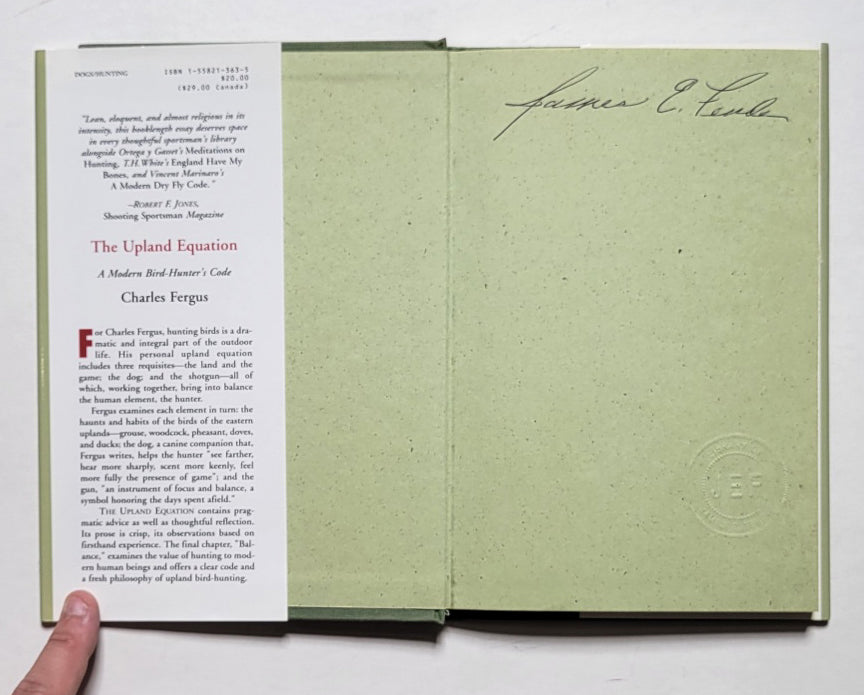 DOGS/HUNTING
ISBN 1-55821-363-5
$20.00
($29.00 Canada)
"Lean, eloquent, and almost religious in its
intensity, this booklength essay deserves space
in every thoughtful sportsman's library
alongside Ortega y Gasset's Meditations on
Hunting, T.H. White's England Have My
Bones, and Vincent Marinaro's
A Modern Dry Fly Code."
—ROBERT F. JONES,
Shooting Sportsman Magazine
The Upland Equation
A Modern Bird-Hunter's Code
Charles Fergus
For Charles Fergus, hunting birds is a dra-
matic and integral part of the outdoor
life. His personal upland equation
includes three requisites—the land and the
game; the dog; and the shotgun—all of
which, working together, bring into balance
the human element, the hunter.
Fergus examines each element in turn: the
haunts and habits of the birds of the eastern
uplands—grouse, woodcock, pheasant, doves,
and ducks; the dog, a canine companion that,
Fergus writes, helps the hunter "see farther,
hear more sharply, scent more keenly, feel
more fully the presence of game"; and the
gun, "an instrument of focus and balance, a
symbol honoring the days spent afield."
THE UPLAND EQUATION contains prag-
matic advice as well as thoughtful reflection.
Its prose is crisp, its observations based on
firsthand experience. The final chapter, "Bal-
ance," examines the value of hunting to mod-
ern human beings and offers a clear code and
a fresh philosophy of upland bird-hunting.
James E.